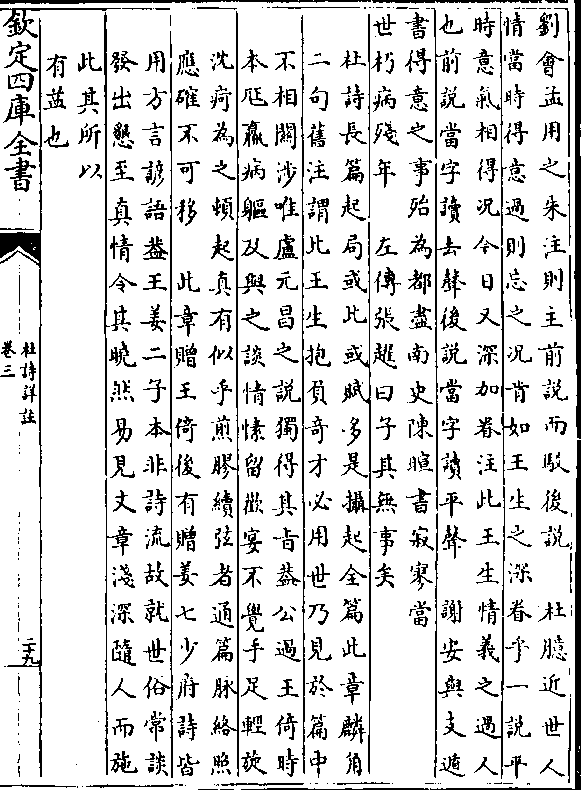 劉㑹孟用之朱注則主前説而駁後説　杜臆近世人
情當時得意過則忘之况肯如王生之深眷乎一説平
時意氣相得况今日又深加眷注此王生情義之過人
也前説當字讀去聲後説當字讀平聲　謝安與支遁
書得意之事殆為都盡南史陳暄書寂寥當
世朽病殘年　左傳張趯曰子其無事矣
杜詩長篇起局或比或賦多是攝起全篇此章麟角
二句舊注謂比王生抱負奇才必用世乃見於篇中
不相關涉唯盧元昌之説獨得其㫖葢公過王倚時
本尫羸病軀及與之談情愫留歡宴不覺手足輕旋
沈疴為之頓起真有似乎煎膠續弦者通篇脉絡照
應確不可移　此章贈王倚後有贈姜七少府詩皆
用方言諺語葢王姜二子本非詩流故就世俗常談
發出懇至真情令其曉然易見文章淺深隨人而施
此其所以
有益也
欽定四庫全書
杜詩詳註
卷三
二十九